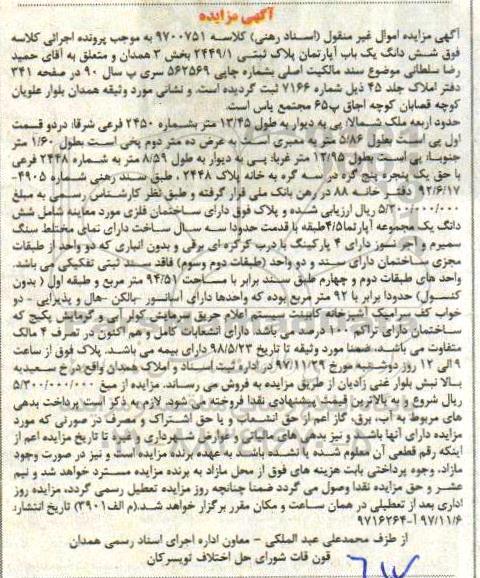 آگهی مزایده
آگهی مزایده اموال غیر منقول (اسناد رهنی) کلاسه ۹۷۰۰۷۵۱ به موجب پرونده اجرائی کلاسه
فوق شش دانگ یک باب آپارتمان پلاک ثبتی ۲۴۴۹/۱ بخش ۳ همدان و متعلق به آقای حمید
رضا سلطانی موضوع سند مالکیت اصلی بشماره چاپی ۵۶۲۵۶۹ سری پ سال ۹۰ در صفحه ۳۴۱
دفتر املاک جلد ۴۵ ذیل شماره ۷۱۶۶ ثبت گردیده است. و نشانی مورد وثیقه همدان بلوار علویان
کوچه قصابان کوچه اجاق پ۶۵ مجتمع یاس است.
حدود اربعه ملک شمالا: پی به دیوار به طول ۱۳/۴۵ متر بشماره ۲۴۵۰ فرعی شرقا: دردو قسمت
اول پی است بطول ۵/۸۶ متر به معبری است به عرض ده متر دوم پخی است بطول ۱/۶۰ متر
جنوبا: پی است بطول ۱۳/۹۵ متر غربا: پی به دیوار به طول ۸/۵۹ متر به شماره ۲۴۴۸ فرعی
با حق یک پنجره پنج گره در سه گره به خانه پلاک ۲۴۴۸ ، طبق سند رهنی شماره ۴۹۰۵-
۹۲/۶/۱۷ دفتر خانه ۸۸ در رهن بانک ملی قرار گرفته و طبق نظر کارشناس رسمی به مبلغ
۵/۳۰۰/۰۰۰/۰۰۰ ریال ارزیابی شده و پلاک فوق دارای ساختمان فلزی مورد معاینه شامل شش
دانگ یک مجموعه آپارتما۴/۵طبقه با قدمت حدودا سه سال ساخت دارای نمای مختلط سنگ
سمیرم و آجر نسوز دارای ۴ پارکینگ با درب کرکره ای برقی و بدون انباری که دو واحد از طبقات
مجزی ساختمان دارای سند و دو واحد (طبقات دوم وسوم) فاقد سند ثبتی تفکیکی می باشد.
واحد های طبقات دوم و چهارم طبق سند برابر با مساحت ۹۴/۵۱ متر مربع و طبقه اول ( بدون
کنسول) حدودا برابر با ۹۲ متر مربع بوده که واحدها دارای آسانسور -بالکن -هال و پذیرایی - دو
خواب کف سرامیک آشپزخانه کابینت سیستم اعلام حریق سرمایش کولر آبی و گرمایش پکیج که
ساختمان دارای تراکم ۱۰۰ درصد می باشد. دارای انشعابات کامل و هم اکنون در تصرف ۴ مالک
متفاوت می باشد، ضمنا مورد وثیقه تا تاریخ ۹۸/۵/۲۳ دارای بیمه می باشد. پلاک فوق از ساعت
۹ الی ۱۲ روز دوشنبه مورخ ۹۷/۱۱/۲۹ در اداره ثبت اسناد و املاک همدان واقع در خ سعیدیه
بالا نبش بلوار غنی زادیان از طریق مزایده به فروش می رساند. مزایده از مبلغ ۵/۳۰۰/۰۰۰/۰۰۰
ریال شروع و به بالاترین قیمت پیشنهادی نقدا فروخته می شود. لازم به ذکر است پرداخت بدهی
های مربوط به آب، برق، گاز اعم از حق انشعاب و یا حق اشتراک و مصرف در صورتی که مورد
مزایده دارای آنها باشد و نیز بدهی های مالیاتی و عوارض شهرداری و غیره تا تاریخ مزایده اعم از
اینکه رقم قطعی آن معلوم شده یا نشده باشد به عهده برنده مزایده است و نیز در صورت وجود
مازاد، وجوه پرداختی بابت هزینه های فوق از محل مازاد به برنده مزایده مسترد خواهد شد و نیم
عشر و حق مزایده نقدا وصول می گردد ضمنا چنانچه روز مزایده تعطیل رسمی گردد، مزایده روز
اداری بعد از تعطیلی در همان ساعت و مکان مقرر برگزار خواهد شد.(م الف۳۹۰۱) تاریخ انتشار:
۹۷/۱۱/۶ آ-۹۷۱۶۲۶۴
از طرف محمدعلی عبد الملکی - معاون اداره اجرای اسناد رسمی همدان
قون قات شورای حل اختلاف تویسرکان